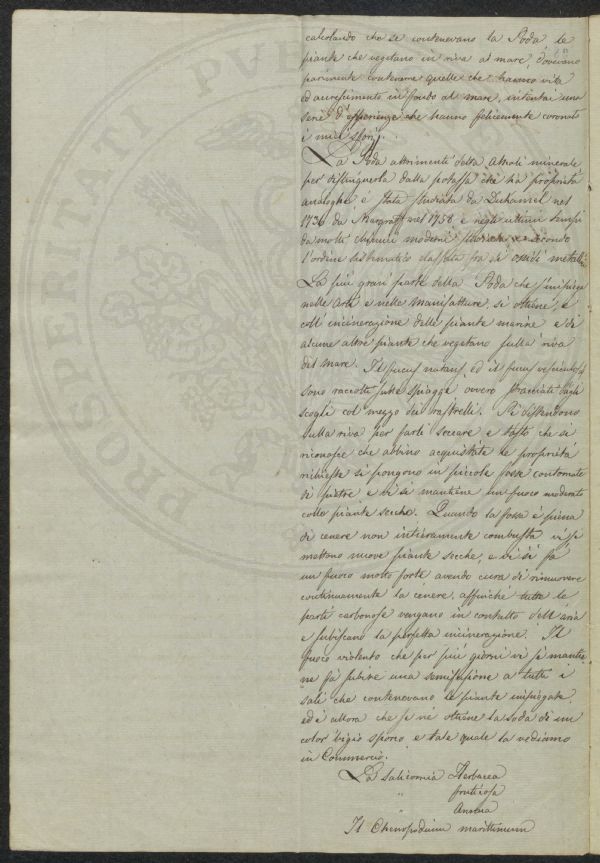 calcolando che se contenevano la Soda le
piante che vegetano in riva al mare, dovevano
parimente contenerne quelle che hanno vita
ed accrescimento in fondo al mare, intentai una
serie d'esperienze che hanno felicemente coronato
i miei sforzi.
La Soda altrimenti detta Alcali minerale
per distinguerla dalla potassa che ha proprietà
analoghe, è stata studiata da Duhamel nel
1736 da Margraff nel 1758 e negli ultimi tempi
da molti chimici moderni secondo
l'ordine sistematico classata fra gli ossidi metalli
La più gran parte della Soda che s'impiega
nelle Arti e nelle manifatture, si ottiene, e
coll' incinerazione delle piante marine e di
alcune altre piante che vegetano sulla riva
del mare. Il fucus natans, ed il fucus vesiculosus
sono raccolti sulle spiagge ovvero stacciati dagli
scogli col mezzo dei rastrelli. Si distendono
sulla riva per farli seccare e tosto che si
riconosce che abbino acquistate le proprietà
richieste si pongono in piccole fosse contornate
di pietre e vi si mantiene un fuoco moderato
colle piante secche. Quando la fossa è piena
di cenere non intieramente combusta vi si
mettono nuove piante secche, e vi si fà
un fuoco molto forte avendo cura di rimuovere
continuamente la cenere, affinchè tutte le
parti carbonose vengano in contatto dell'aria
e subiscano la perfetta incinerazione. Il
fuoco violento che per più giorni vi si mantie
ne fà subire una semifusione a tutti i
sali che contenevano le piante impiegate
ed è allora che se ne ottiene la soda di un
color bigio sporco e tale quale la vediamo
in Commercio.
La salicornia Herbacea
" fruticosa
" Annua
Il Chenopodium marittimum